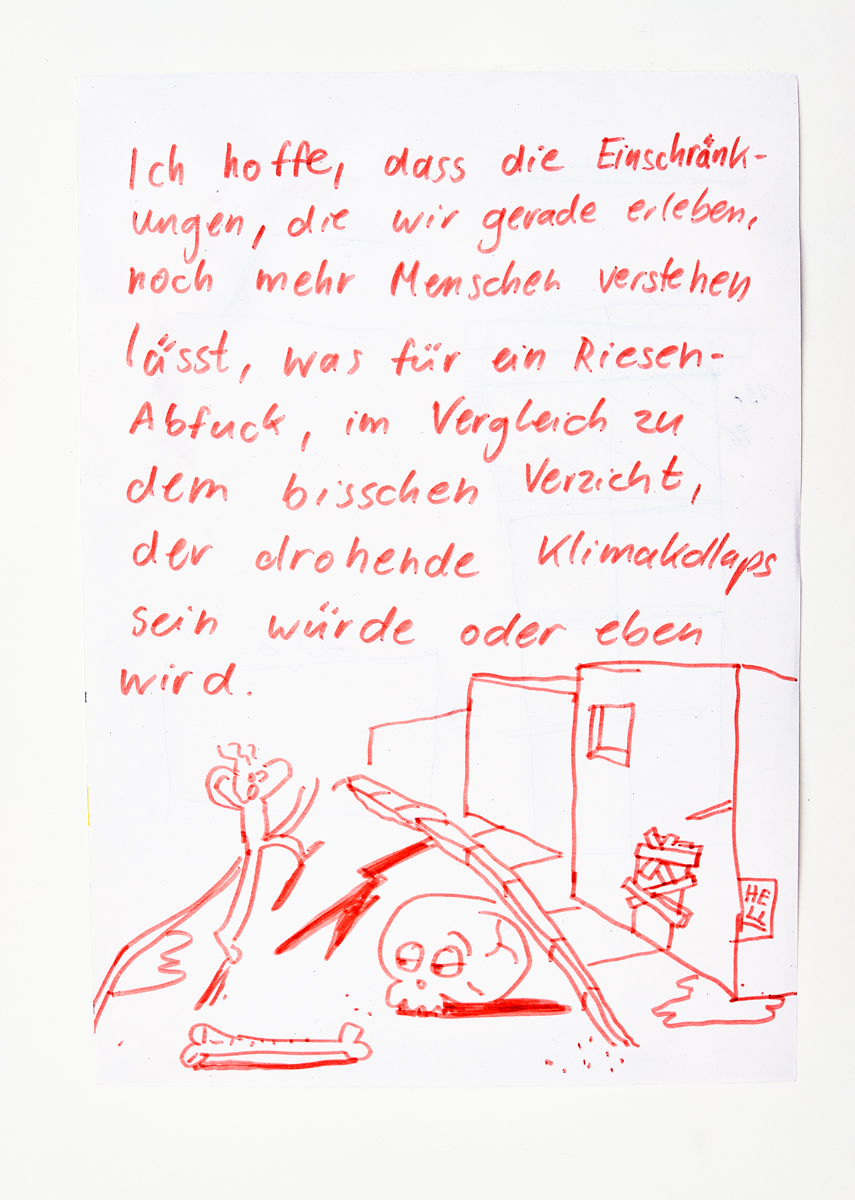 Ich hoffe, dass die Einschränk-
ungen, die wir gerade erleben,
noch mehr Menschen verstehen
lässt, was für ein Riesen-
Abfuck, im Vergleich zu
dem bisschen Verzicht,
der drohende Klimakollaps
sein würde oder eben
wird.
HE
LL